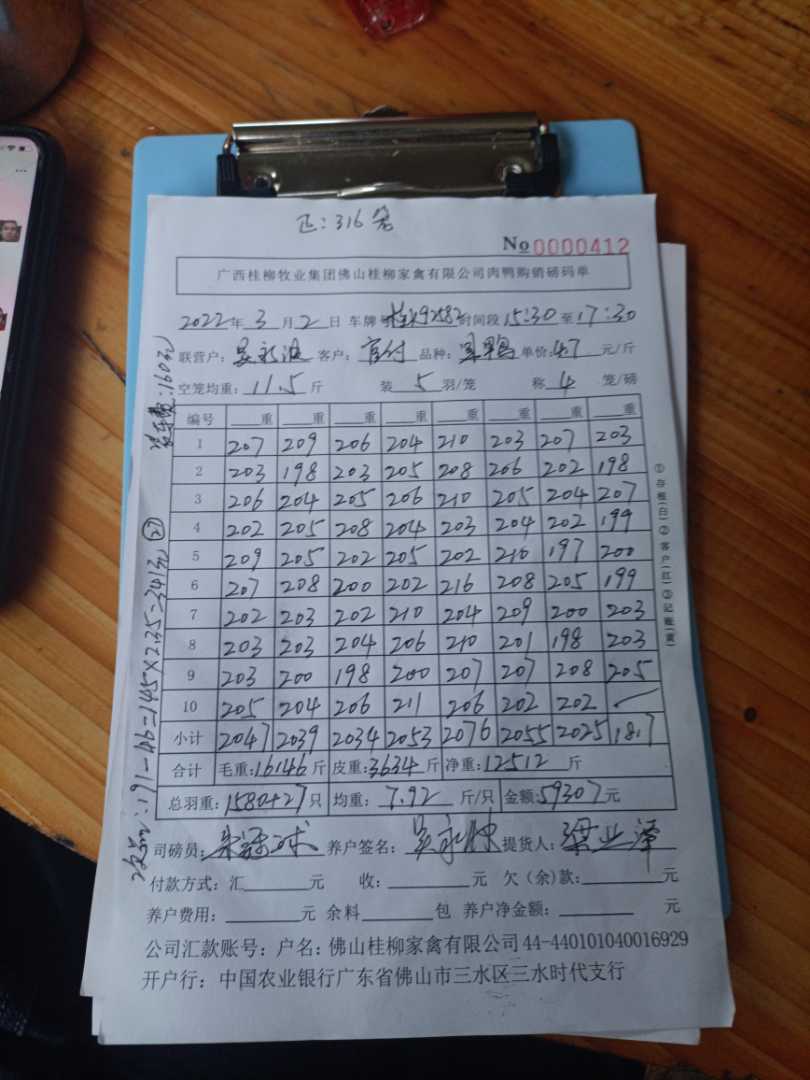 匹:316笼
No 0000412
广西桂柳牧业集团佛山桂柳家禽有限公司肉鸭购销磅码单
2022年 3 月 2 日 车牌 时间段 15:30 至 17:30
联营户: 客户: 品种: 单价: 4.7 元/斤
空笼均重: 11.5 斤 装 5 羽/笼 称 4 笼/磅
编号 重 重 重 重 重 重 重 重
1 207 209 206 204 210 203 207 203
2 203 198 203 205 208 206 202 198
3 206 204 205 206 210 205 204 207
4 202 205 208 204 203 204 202 199
5 209 205 202 205 202 210 197 200
6 207 208 200 202 216 208 205 199
7 202 203 202 210 204 209 200 203
8 203 203 204 206 210 201 198 203
9 203 200 198 200 207 207 208 205
10 205 204 206 211 206 202 202
小计 2047 2039 2034 2053 2076 2055 2025 1817
合计 毛重: 16146 斤 皮重: 3634 斤 净重: 12512 斤
总羽重: 1580+27 只 均重: 7.92 斤/只 金额: 59307 元
司磅员: 养户签名: 提货人: 梁业泽
付款方式: 汇 元 收: 元 欠(余)款: 元
养户费用: 元 余料 包 养户净金额: 元
公司汇款账号: 户名: 佛山桂柳家禽有限公司 44-440101040016929
开户行: 中国农业银行广东省佛山市三水区三水时代支行
①存根(白)②客户(红)③记账(黄)
:1603元
191-1=1545×2.35=3413元